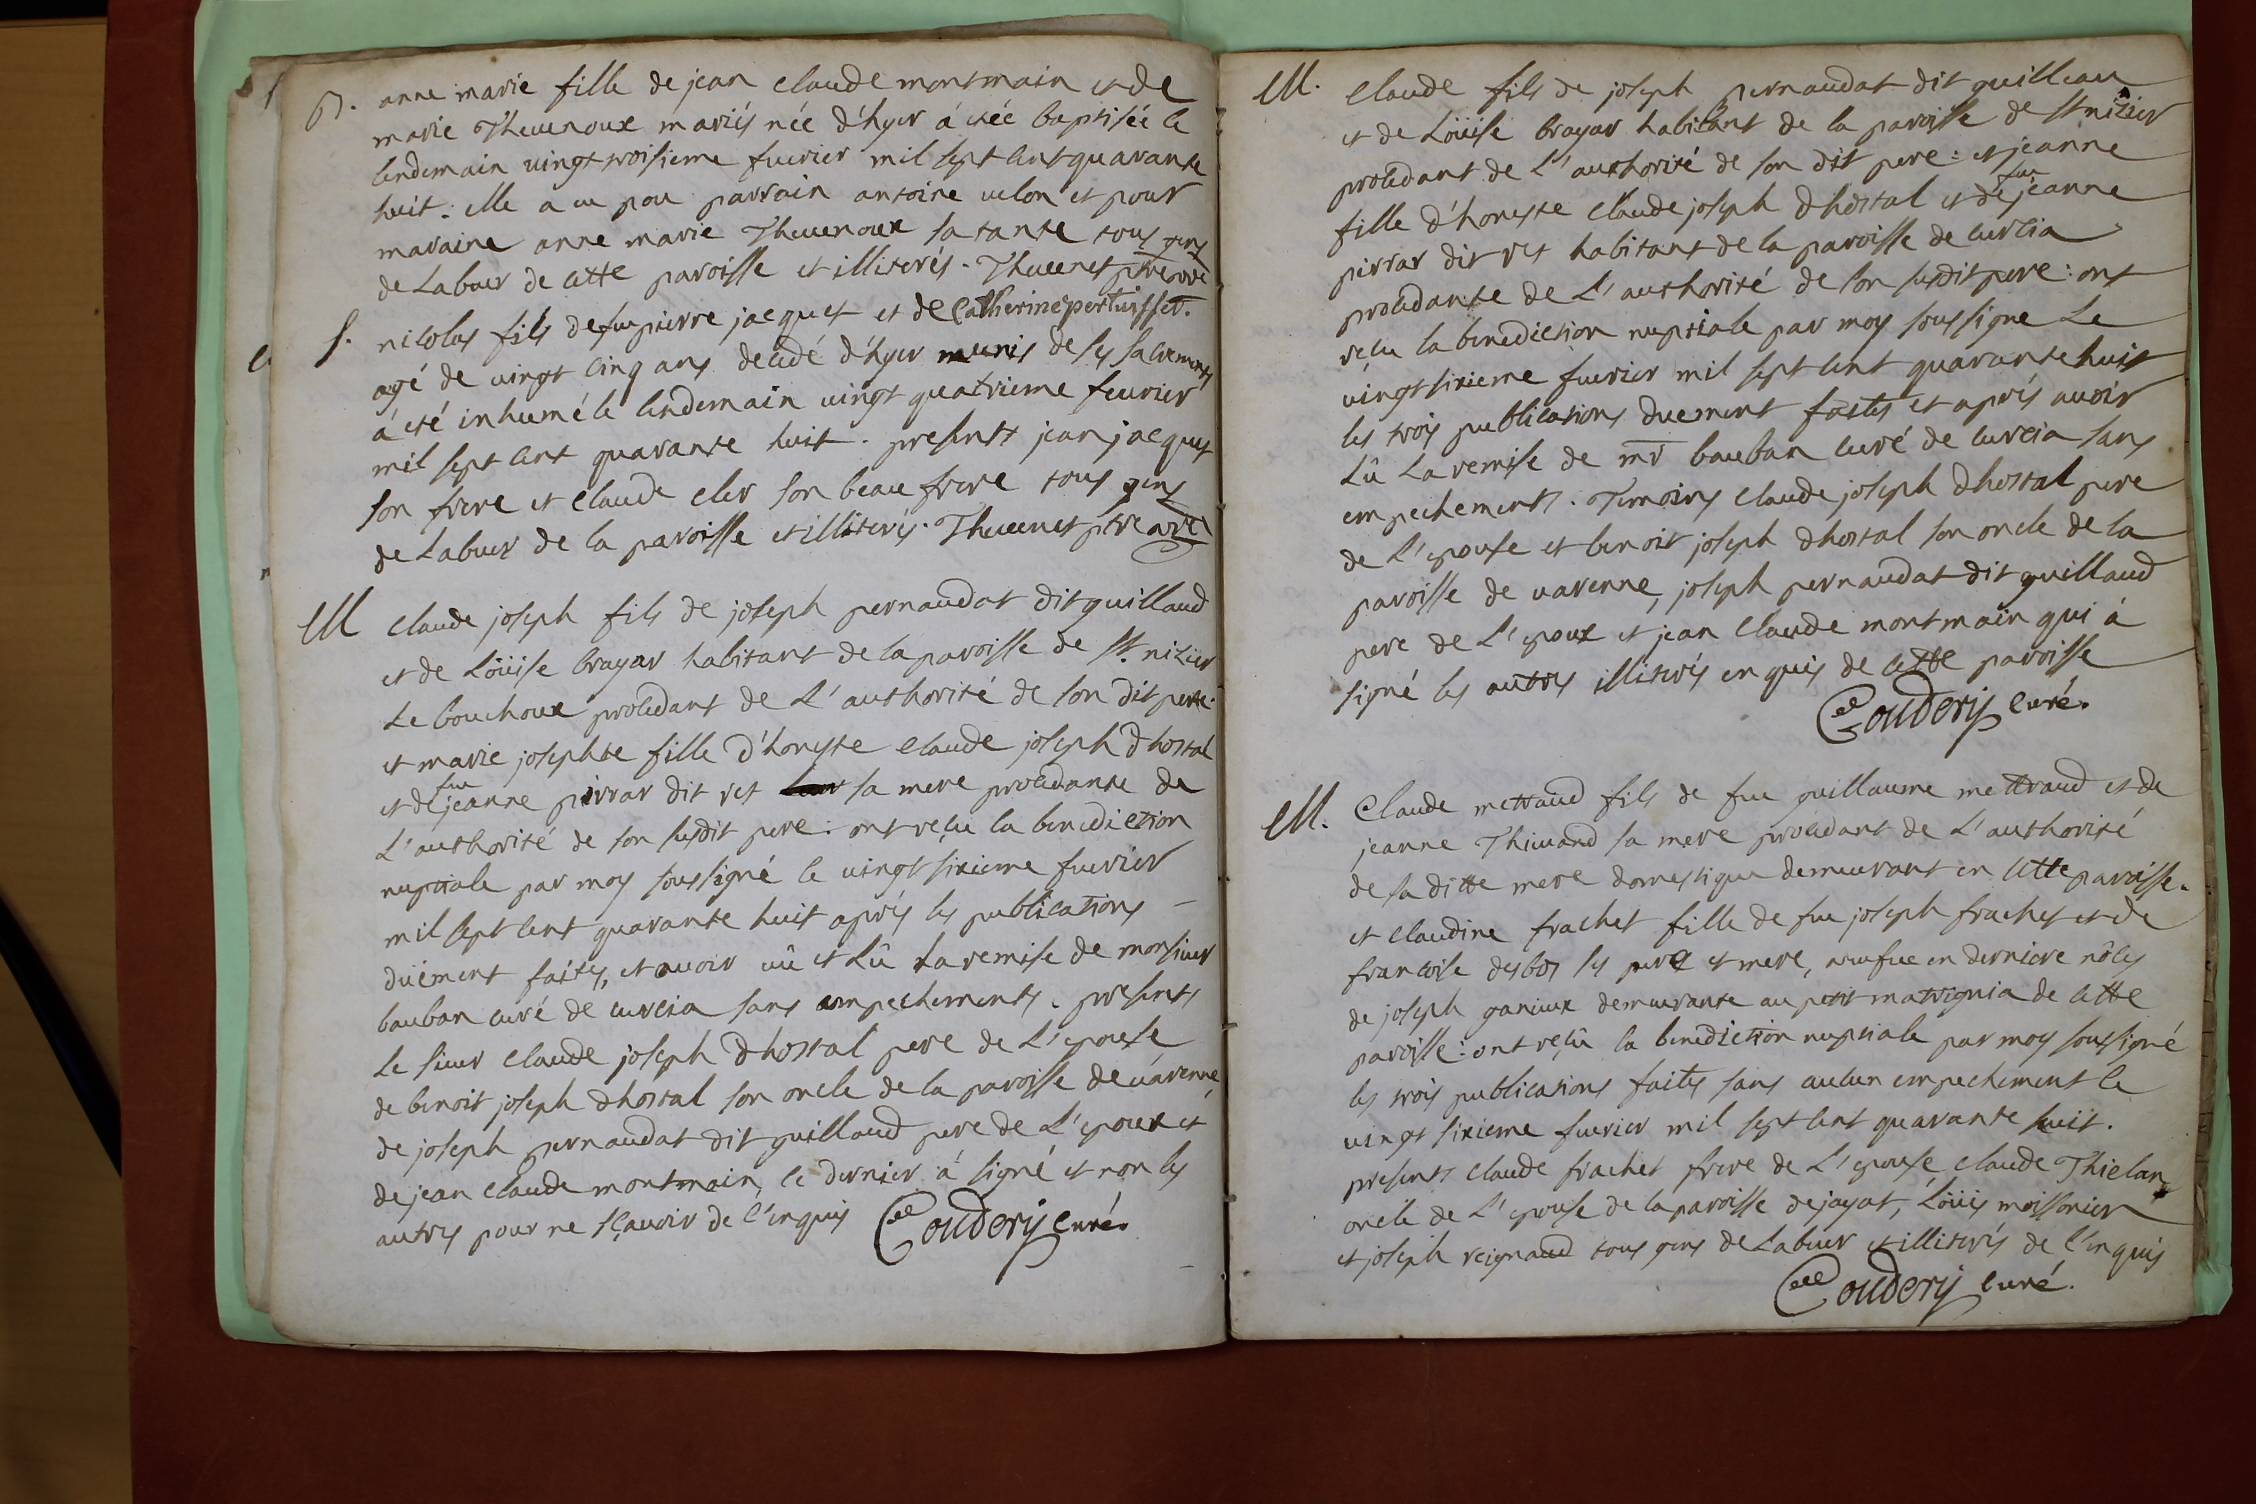 B. anne marie fille de jean claude montmain et de
marie Theuenoux mariés née d'hyer á etéé baptiséé le
lendemain vingt troisieme feurier mil sept cent quarante
huit. elle a eu pou parrain antoine uelon et pour
maraine anne marie Theuenoux sa tante tous gens
de Labuer de cette paroisse et illiterés. Theuenet
S. nicolas fils de fue pierre jacquet et de Catherine pertuisset.
agé de uingt cinq ans decedé d'hyer munis de ses sacrements
á eté inhumé le lendemain uingt quatrieme feurier
mil sept cent quarante huit. presents jean jacquet
son frere et claude cler son beau frere tous gens
de Labuer de la paroisse et illiterés. Theuenet
M claude joseph fils de joseph pernaudat dit guillaud
et de Loüise brayar habitant de la paroisse de st. nizier
Le bouchoux procedant de L'authorité de son dit pere.
et marie josephte fille d'honeste claude joseph dhostal
et de fue jeanne pirrar dit ret sa mere procedante de
L'authorité de son susdit pere: ont reçu la benediction
nuptiale par moy soussigné le uingt sixieme feurier
mil sept cent quarante huit aprés les publications
duëment faites, et auoir uû et Lû La remise de monsieur
bauban curé de curcia sans empechements. presents
Le sieur claude joseph dhostal pere de L'epouse
de benoit joseph dhostal son oncle de la paroisse de uarenne
de joseph pernaudat dit guillaud pere de L'epoux et
de jean claude montmain, le dernier á signé et non les
autres pour ne sçauoir de l'enquis Couderij curé.
M. claude fils de joseph pernaudat dit guilleau
et de Loüise brayar habitant de la paroisse de st nizier
procedant de L'authorité de son dit pere: et jeanne
fille d'honeste claude joseph dhostal et de fue jeanne
pirrar dit ret habitant de la paroisse de curcia
procedante de L'authorité de son susdit pere: ont
reçu la benediction nuptiale par moy soussigne Le
uingt sixieme feurier mil sept cent quarante huit
les trois publications duement faites et aprés auoir
Lû La remise de mr bauban curé de curcia sans
empechements. Temoins claude joseph dhostal pere
de L'epouse et benoit joseph dhostal son oncle de la
paroisse de uarenne, joseph pernaudat dit guillaud
pere de L'epoux et jean claude montmain qui á
signé les autres illiterés enquis de cette paroisse
Couderij curé.
M. Claude mettraud fils de fue guillaume mettraud et de
jeanne Thiuand sa mere procedant de L'authorité
de sa ditte mere domestique demeurant en cette paroisse.
et claudine frachet fille de fue joseph frachet et de
francoise desbos ses pere et mere, ueufue en derniere nôces
de joseph ganiux demeurante au petit matrignia de cette
paroisse: ont reçû la benediction nuptiale par moy soussigné
les trois publications faites sans aucun empechement le
uingt sixieme feurier mil sept cent quarante huit.
presents claude frachet frere de L'epouse, claude Thielan
oncle de L'epouse de la paroisse de jayat, Loüis moissonier
et joseph reignaud tous gens de Labuer et illiterés de l'enquis
Couderij curé.